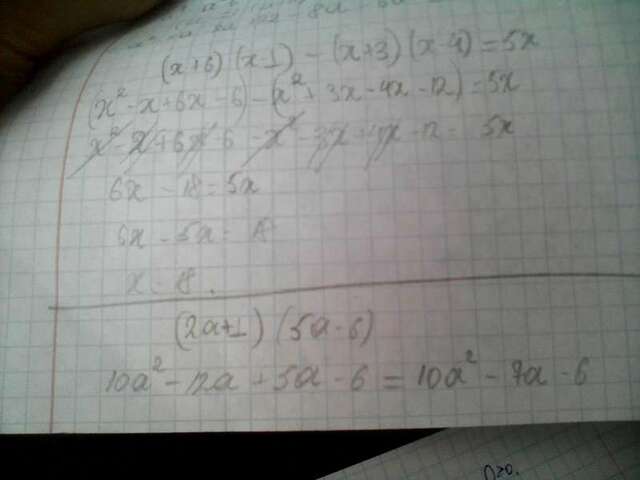 (x+6)(x-1) - (x+3)(x-4) = 5x
(x²-x+6x-6)-(x²+3x-4x-12)=5x
x²-x+6x-6-x²-3x+4x-12=5x
6x-18=5x
6x-5x=18
x=18.
(2a+1)(5a-6)
10a²-12a+5a-6=10a²-7a-6